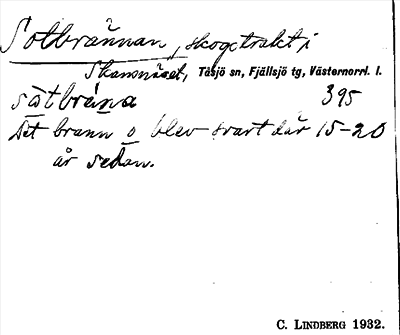 Sotbrännan, skogstrakt i
Skansnäset, Tåsjö sn, Fjällsjö tg, Västernorrl. l.
sòtbrä́na 395
Det brann o blev svart där 15-20
år sedan.
C. LINDBERG 1932.